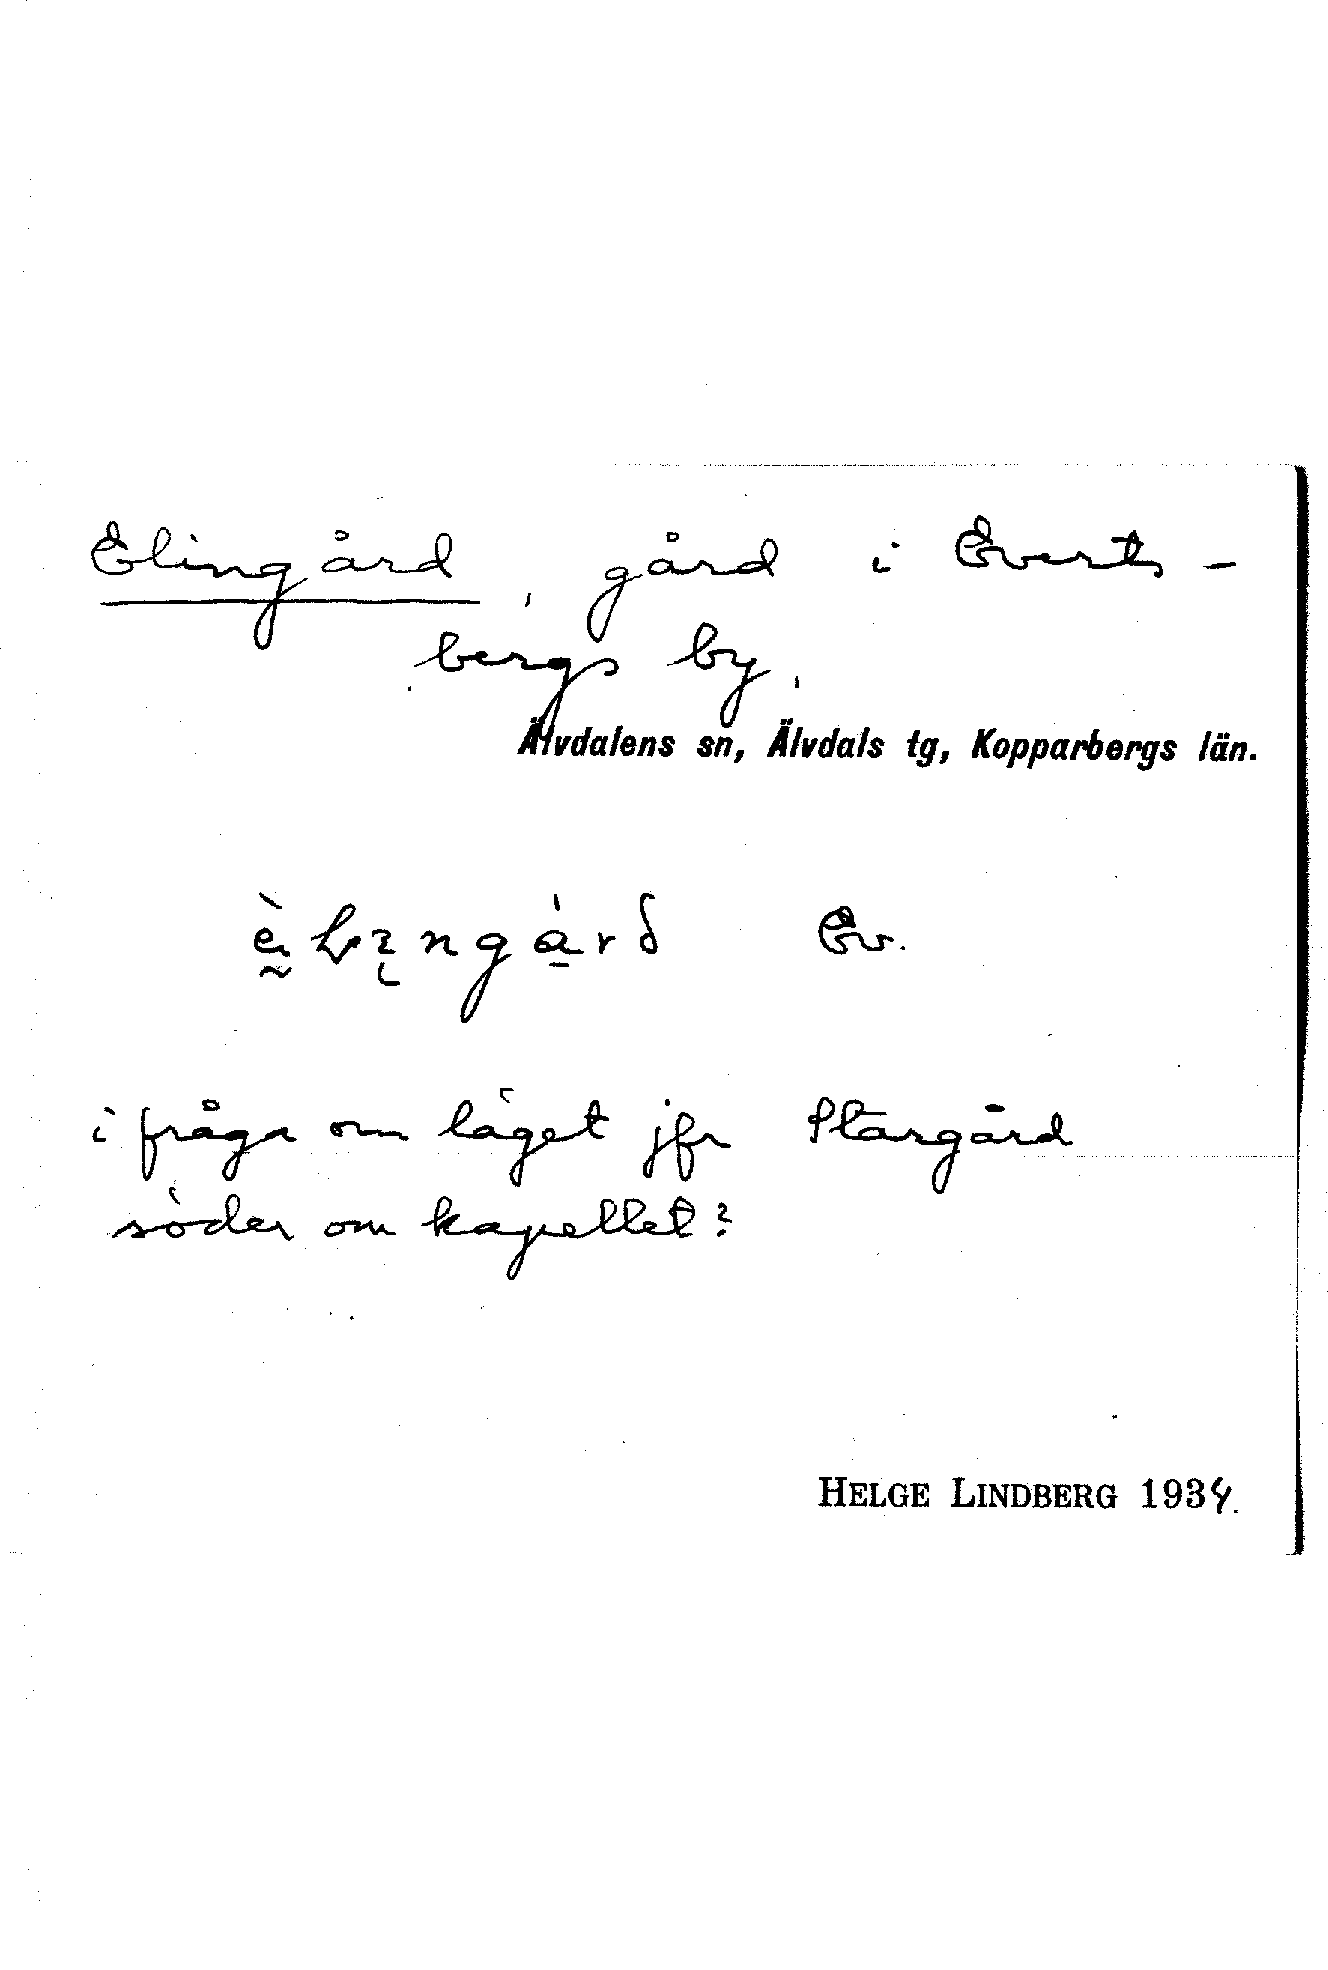 Elingård, gård i Everts-
bergs by,
Älvdalens sn, Älvdals tg, Kopparbergs län.
Ev.
i fråga om läget jfr Stargård
söder om kapellet?
HELGE LINDBERG 1934.